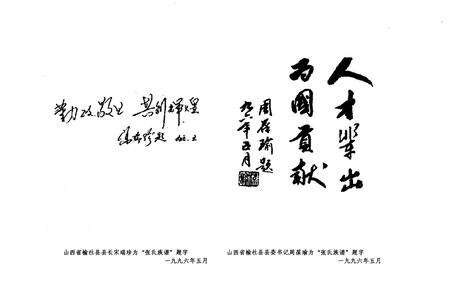 勤政敬业 共创辉煌
人才輩出
为國貢献
周葆瑜题
九六年五月
山西省榆社县县长宋瑞珍为“张氏族谱”题字
一九九六年五月
山西省榆社县县委书记周葆瑜为“张氏族谱”题字
一九九六年五月